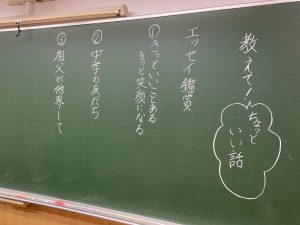 教えて！
ちょっと
いい話
エッセイ鑑賞
①きっといいことある
もっと笑顔になる
②中学の友だち
③祖父が他界して